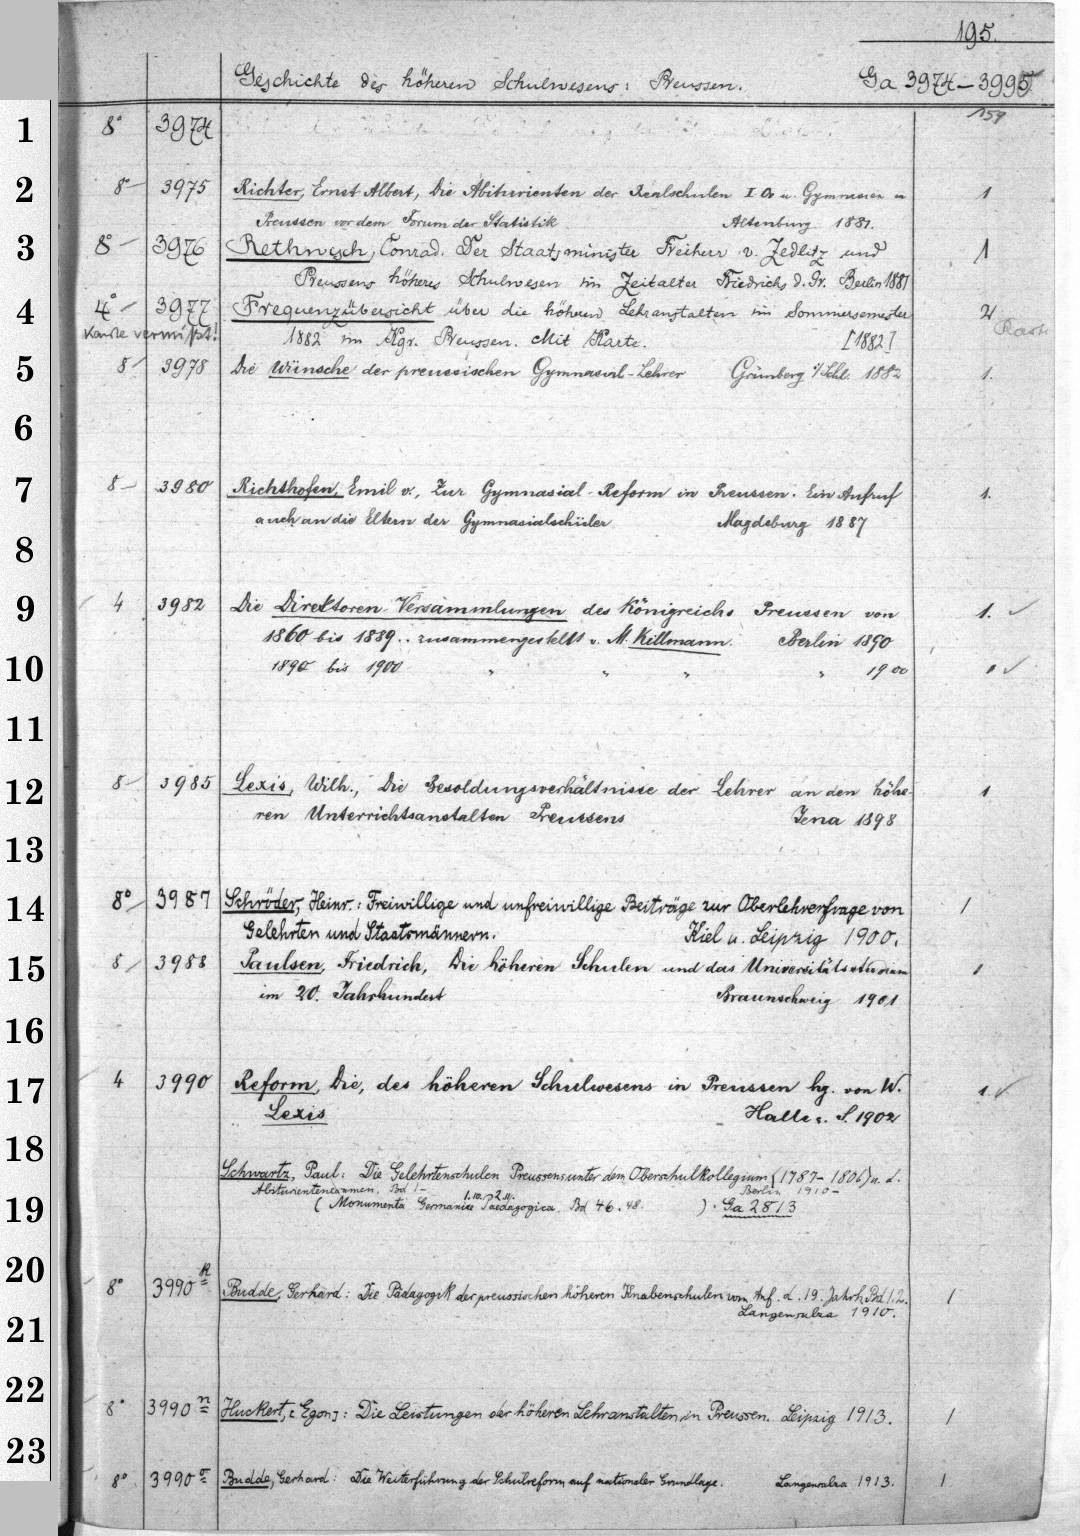 195.
Geschichte des höheren Schulwesens: Preussen. Ga 3974–3995
159
1 8° 3974
2 8 3975 Richter, Ernst Albert, Die Abiturienten der Realschulen I O. u. Gymnasien in 1
Preussen vor dem Forum der Statistik Altenburg 1881.
3 8° 3976 Rethwisch, Conrad. Der Staatsminister Freiherr v. Zedlitz und 1
Preussens höheres Schulwesen im Zeitalter Friedrichs d. Gr. Berlin 1881
4 4° 3977 Frequenzübersicht über die höheren Lehranstalten im Sommersemester
Karte vermißt! 1882 im Kgr. Preussen. Mit Karte. [1882] Karte
5 8 3978 Die Wünsche der preussischen Gymnasial-Lehrer Grünberg i/Schl. 1882 1.
6
7 8 3980 Richthofen, Emil v., Zur Gymnasial-Reform in Preussen. Ein Aufruf 1.
auch an die Eltern der Gymnasialschüler Magdeburg 1887
8
9 4 3982 Die Direktoren-Versammlungen des Königreichs Preussen von 1. ✓
1860 bis 1889.. zusammengestellt v. M. Killmann. Berlin 1890
10 1890 bis 1900 „ „ „ „ 1900 1 ✓
11
12 8 3985 Lexis, Wilh., Die Besoldungsverhältnisse der Lehrer an den höhe- 1
ren Unterrichtsanstalten Preussens Jena 1898
13
14 8° 3987 Schröder, Heinr.: Freiwillige und unfreiwillige Beiträge zur Oberlehrerfrage von 1
Gelehrten und Staatsmännern. Kiel u. Leipzig 1900.
15 8 3988 Paulsen, Friedrich, Die höheren Schulen und das Universitätsstudium 1
im 20. Jahrhundert Braunschweig 1901
16
17 4 3990 Reform, Die, des höheren Schulwesens in Preussen hg. von W. 1 ✓
Lexis Halle a. S. 1902
18
Schwartz, Paul: Die Gelehrtenschulen Preussens unter dem Oberschulkollegium (1787–1806) u. d.
Abiturientenexamen. Bd 1– Berlin 1910–
19 (Monumenta Germaniae Paedagogica. Bd 46. 48. ). Ga 2813
20 8° 3990 k Budde, Gerhard: Die Pädagogik der preussischen höheren Knabenschulen vom Anf. d. 19. Jahrh. Bd 1.2. 1
Langensalza 1910.
21
22 8° 3990 n Huckert, [Egon]: Die Leistungen der höheren Lehranstalten in Preussen. Leipzig 1913. 1
23 8° 3990 Budde, Gerhard: Die Weiterführung der Schulreform auf nationaler Grundlage. Langensalza 1913. 1